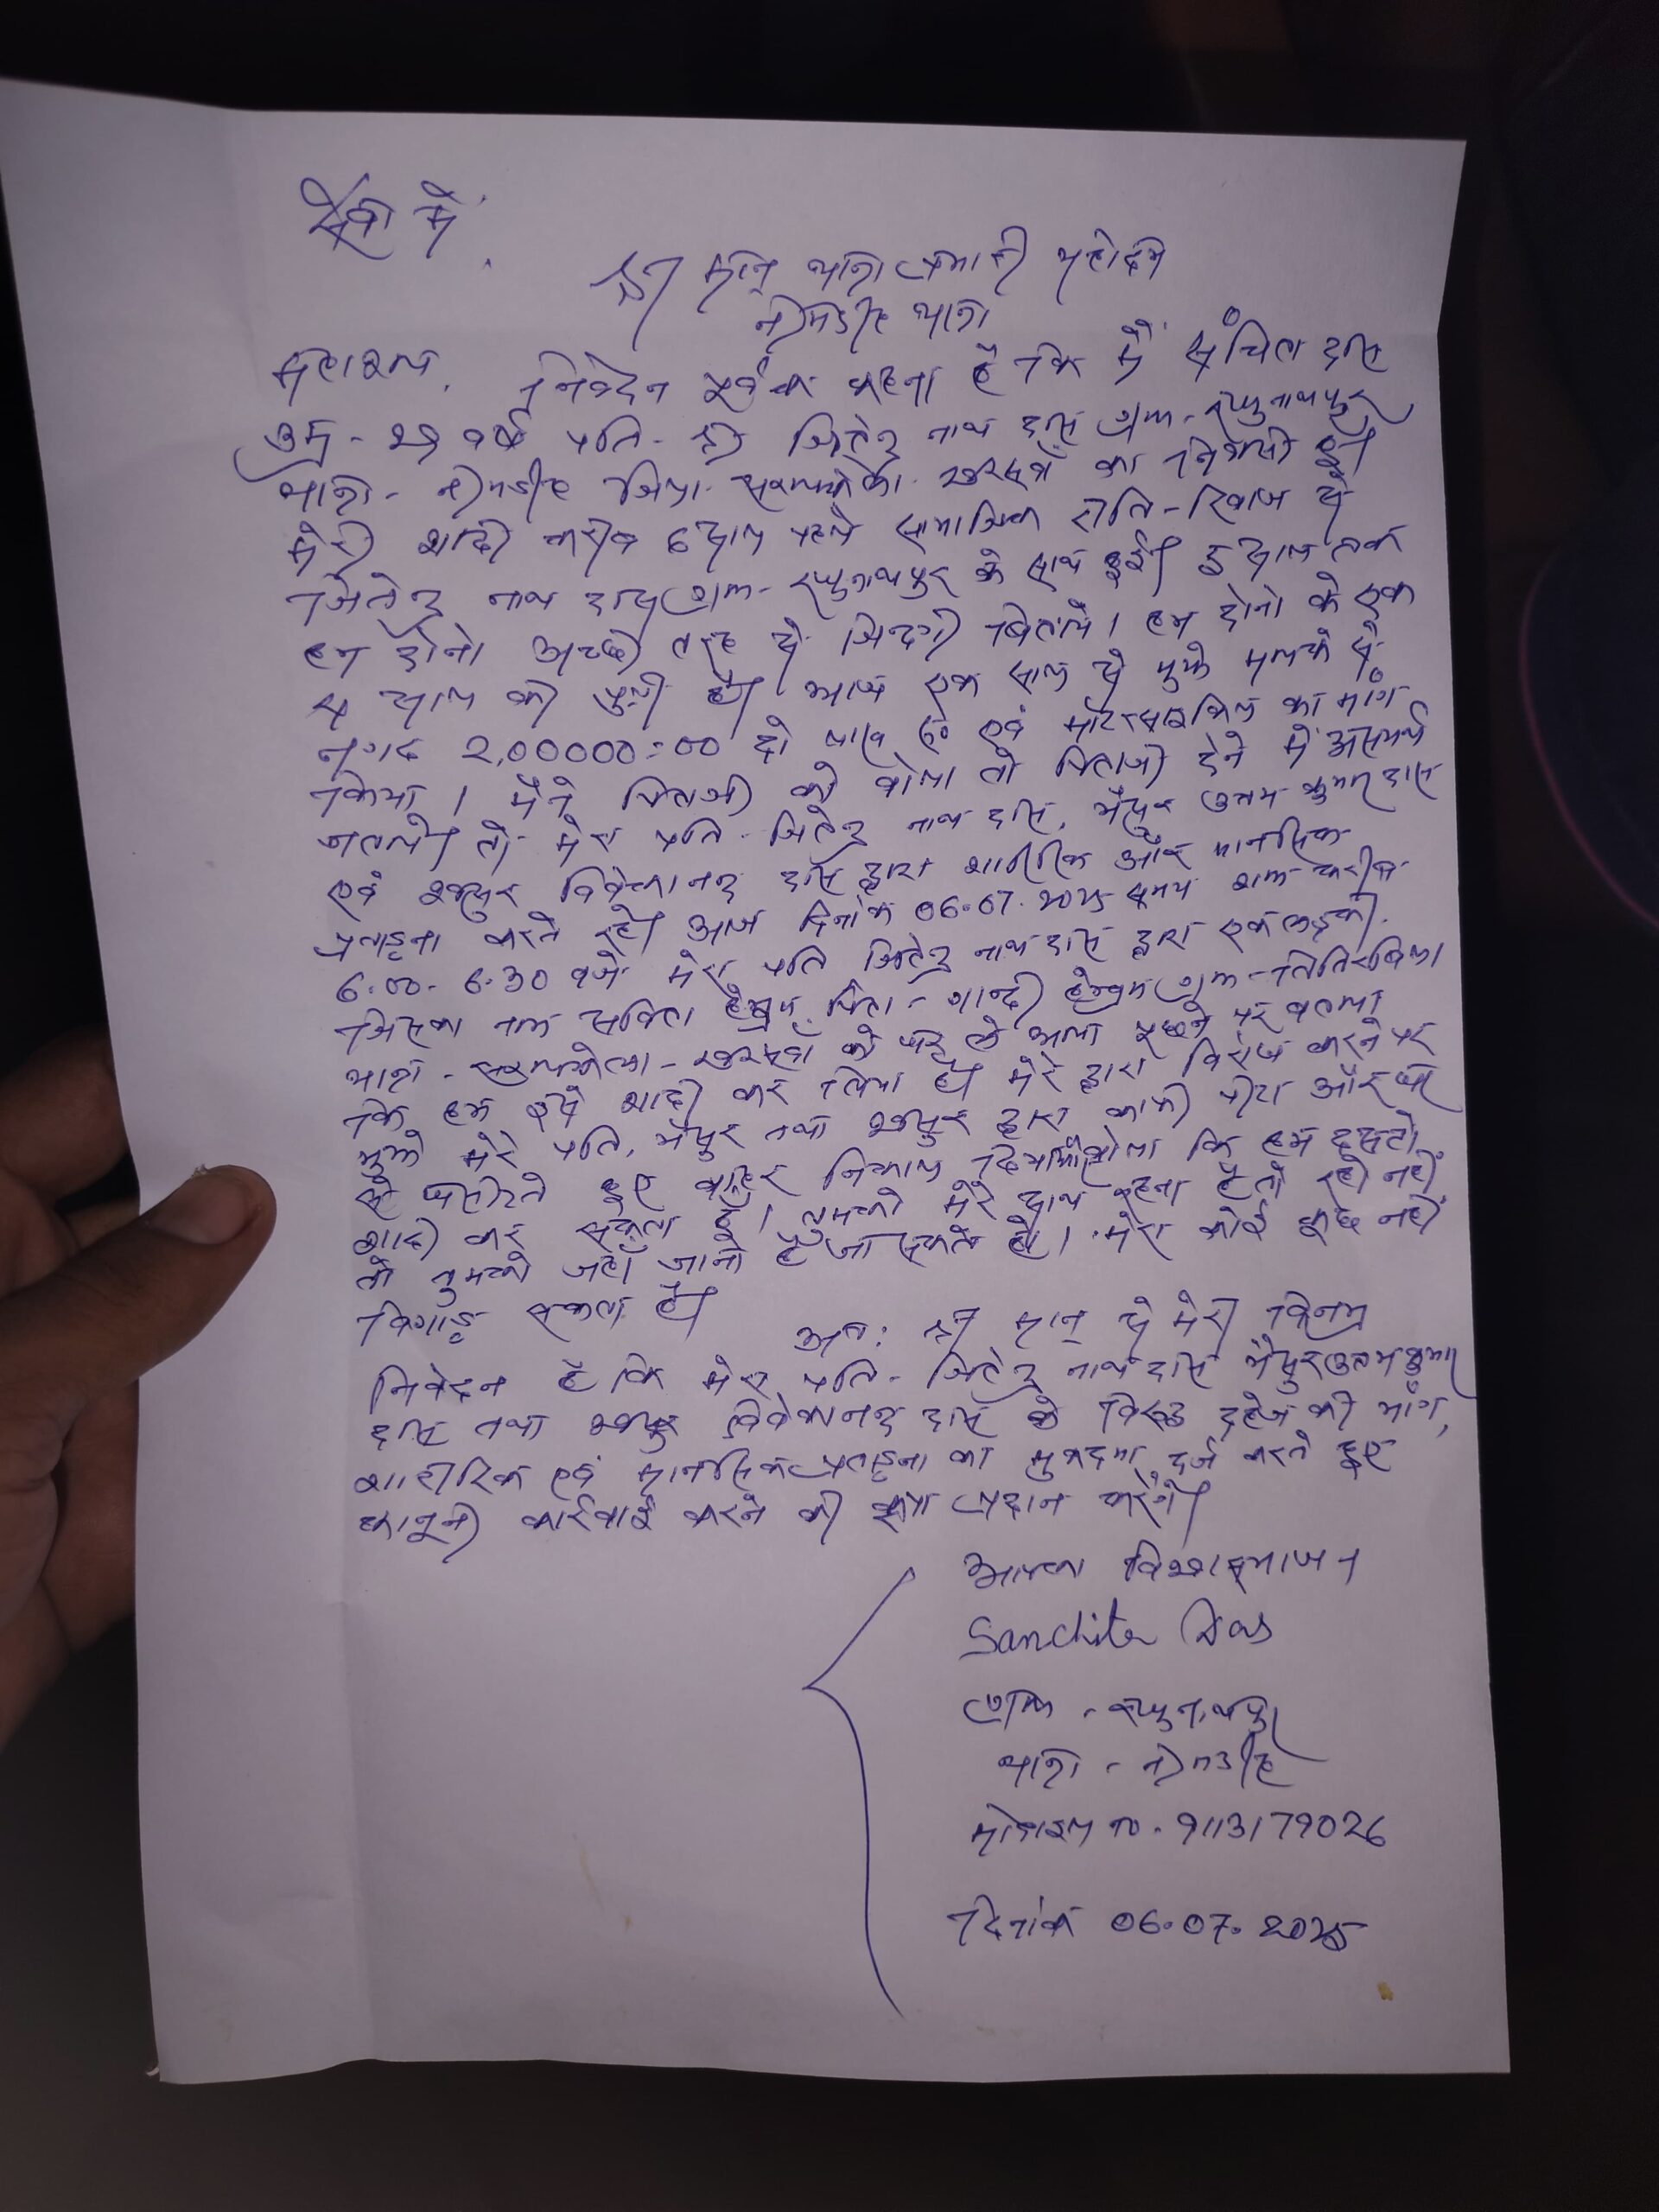 सेवा में,
श्री मान् थाना प्रभारी महोदय
नीमडीह थाना
महाशय, निवेदन पूर्वक कहना है कि मैं संचिता दास
उम्र - 29 वर्ष पति - श्री जितेन्द्र नाथ दास ग्राम - रघुनाथपुर
थाना - नीमडीह जिला सरायकेला खरसवाँ का निवासी हूँ।
मेरी शादी करीब 6 साल पहले सामाजिक रीति - रिवाज से
जितेन्द्र नाथ दास ग्राम - रघुनाथपुर के साथ हुई। 5 साल तक
हम दोनो अच्छी तरह से जिन्दगी बितायें। हम दोनो के एक
4 साल की पुत्री है। आज एक साल से मुझे मायके से
नगद 2,00000=00 दो लाख रू० एवं मोटरसाइकिल का मांग
किया। मैंने पिताजी को बोला तो पिताजी देने में असमर्थ
जताये। तो मेरा पति - जितेन्द्र नाथ दास, भैंसुर उत्तम कुमार दास
एवं श्वसुर विवेकानन्द दास द्वारा शारीरिक और मानसिक
प्रताड़ना करते रहे। आज दिनांक 06.07.2025 समय शाम करीब
6.00 - 6.30 बजे मेरा पति जितेन्द्र नाथ दास द्वारा एक लड़की
जिसका नाम सबिता हेम्ब्रम, पिता - हेम्ब्रम ग्राम - तितिरबिला
थाना - सरायकेला - खरसवाँ को घर ले आया पूछने पर बताया
कि हम इसे शादी कर लिया है। मेरे द्वारा विरोध करने पर
मुझे मेरे पति, भैंसुर तथा श्वसुर द्वारा काफी पीटा और घर
से घसीटते हुए बाहर निकाल दिया। बोला कि हम दूसरी
शादी कर सकता हूँ। तुमको मेरे साथ रहना है तो रहो नहीं
तो तुमको जहाँ जाना है जा सकते हो। मेरा कोई कुछ नहीं
बिगाड़ सकता है।
अतः श्री मान् से मेरी विनम्र
निवेदन है कि मेरा पति - जितेन्द्र नाथ दास भैंसुर उत्तम कुमार
दास तथा श्वसुर विवेकानन्द दास के विरूद्ध दहेज की मांग,
शारीरिक एवं मानसिक प्रताड़ना का मुकदमा दर्ज करते हुए
कानूनी कार्रवाई करने की कृपा प्रदान करेंगे।
आपका विश्वासभाजन
Sanchita Das
ग्राम - रघुनाथपुर
थाना - नीमडीह
मोबाइल न० - 9113179026
दिनांक 06.07.2025